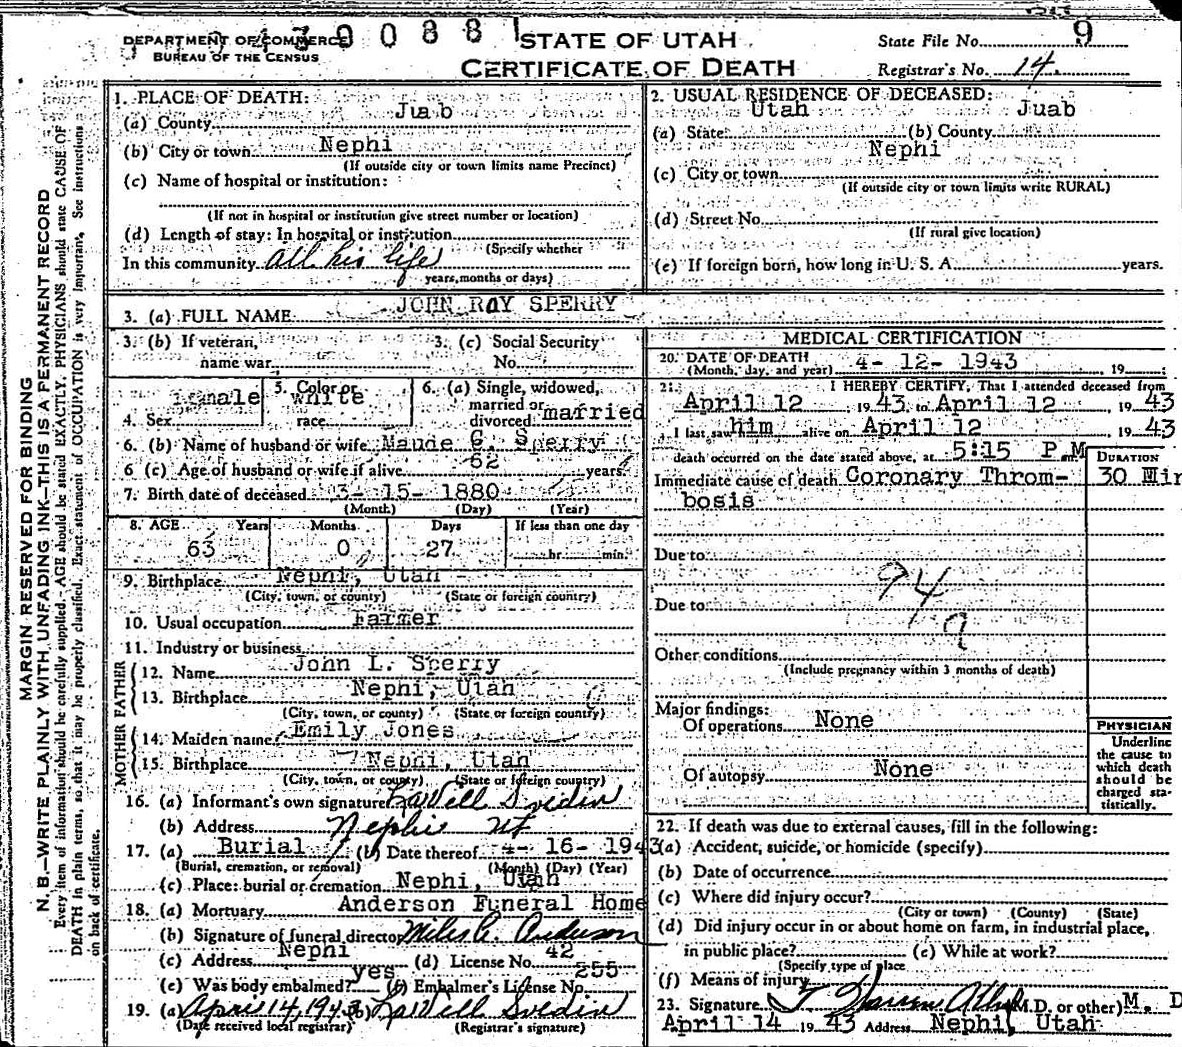 DEPARTMENT OF COMMERCE
BUREAU OF THE CENSUS
4300881
STATE OF UTAH
CERTIFICATE OF DEATH
State File No. 9
Registrar's No. 14.
MARGIN RESERVED FOR BINDING
N. B.—WRITE PLAINLY WITH UNFADING INK—THIS IS A PERMANENT RECORD
Every item of information should be carefully supplied. AGE should be stated EXACTLY. PHYSICIANS should state CAUSE OF
DEATH in plain terms, so that it may be properly classified. Exact statement of OCCUPATION is very important. See instructions
on back of certificate.
1. PLACE OF DEATH:
(a) County Juab
(b) City or town Nephi
(If outside city or town limits name Precinct)
(c) Name of hospital or institution:
(If not in hospital or institution give street number or location)
(d) Length of stay: In hospital or institution
(Specify whether
In this community all his life
years, months or days)
2. USUAL RESIDENCE OF DECEASED:
(a) State Utah (b) County Juab
(c) City or town Nephi
(If outside city or town limits write RURAL)
(d) Street No.
(If rural give location)
(e) If foreign born, how long in U. S. A. years.
3. (a) FULL NAME JOHN ROY SPERRY
3. (b) If veteran, name war
3. (c) Social Security No.
4. Sex male
5. Color or race white
6. (a) Single, widowed, married or divorced married
6. (b) Name of husband or wife Maude G. Sperry
6 (c) Age of husband or wife if alive 62 years
7. Birth date of deceased 3- 15- 1880
(Month) (Day) (Year)
8. AGE Years Months Days If less than one day
63 0 27 hr. min.
9. Birthplace Nephi, Utah
(City, town, or county) (State or foreign country)
10. Usual occupation Farmer
11. Industry or business
FATHER
12. Name John L. Sperry
13. Birthplace Nephi, Utah
(City, town, or county) (State or foreign country)
MOTHER
14. Maiden name Emily Jones
15. Birthplace Nephi, Utah
(City, town, or county) (State or foreign country)
16. (a) Informant's own signature LaVell Svedin
(b) Address Nephi Ut
17. (a) Burial (b) Date thereof 4- 16- 1943
(Burial, cremation, or removal) (Month) (Day) (Year)
(c) Place: burial or cremation Nephi, Utah
18. (a) Mortuary Anderson Funeral Home
(b) Signature of funeral director Miles A. Anderson
(c) Address Nephi (d) License No. 42
(e) Was body embalmed? yes (f) Embalmer's License No. 255
19. (a) April 14, 1943 (b) LaVell Svedin
(Date received local registrar) (Registrar's signature)
MEDICAL CERTIFICATION
20. DATE OF DEATH 4- 12- 1943, 19
(Month, day, and year)
21. I HEREBY CERTIFY, That I attended deceased from
April 12 1943 to April 12, 1943
I last saw him alive on April 12, 1943
death occurred on the date stated above, at 5:15 P.M
DURATION
Immediate cause of death Coronary Throm- 30 Min
bosis
Due to
94
Due to
a
Other conditions
(Include pregnancy within 3 months of death)
Major findings:
Of operations None
Of autopsy None
PHYSICIAN
Underline
the cause to
which death
should be
charged sta-
tistically.
22. If death was due to external causes, fill in the following:
(a) Accident, suicide, or homicide (specify)
(b) Date of occurrence
(c) Where did injury occur?
(City or town) (County) (State)
(d) Did injury occur in or about home on farm, in industrial place,
in public place? (e) While at work?
(Specify type of place
(f) Means of injury
23. Signature (M.D. or other) M. D
April 14 1943 Address Nephi, Utah